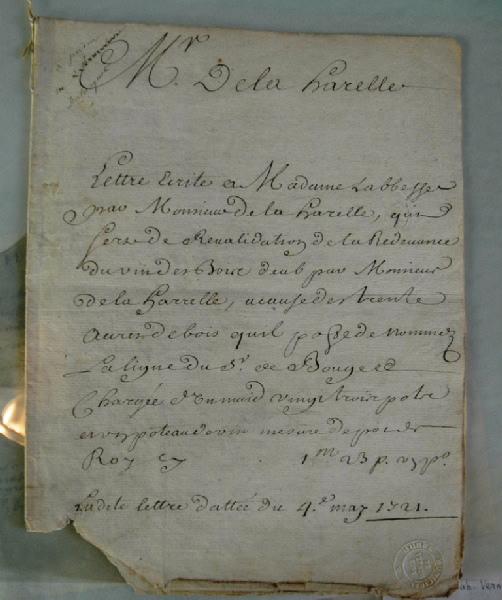 Mr. De la harelle
Lettre Ecrite a Madame Labbesse
par Monsieur de la harelle, qui
sert de Reualidation de la Redeuance
du vin des Bois deub par Monsieur
de la harelle, a cause des trente
aurpen de bois quil possede nommez
La ligne du Sr. de Bouges
Chargée d'un muid vingt trois potz
et un poteau de vin mesure de
Roy cy 1m 23 p.
Ladite lettre dattée du 4.e may 1721.